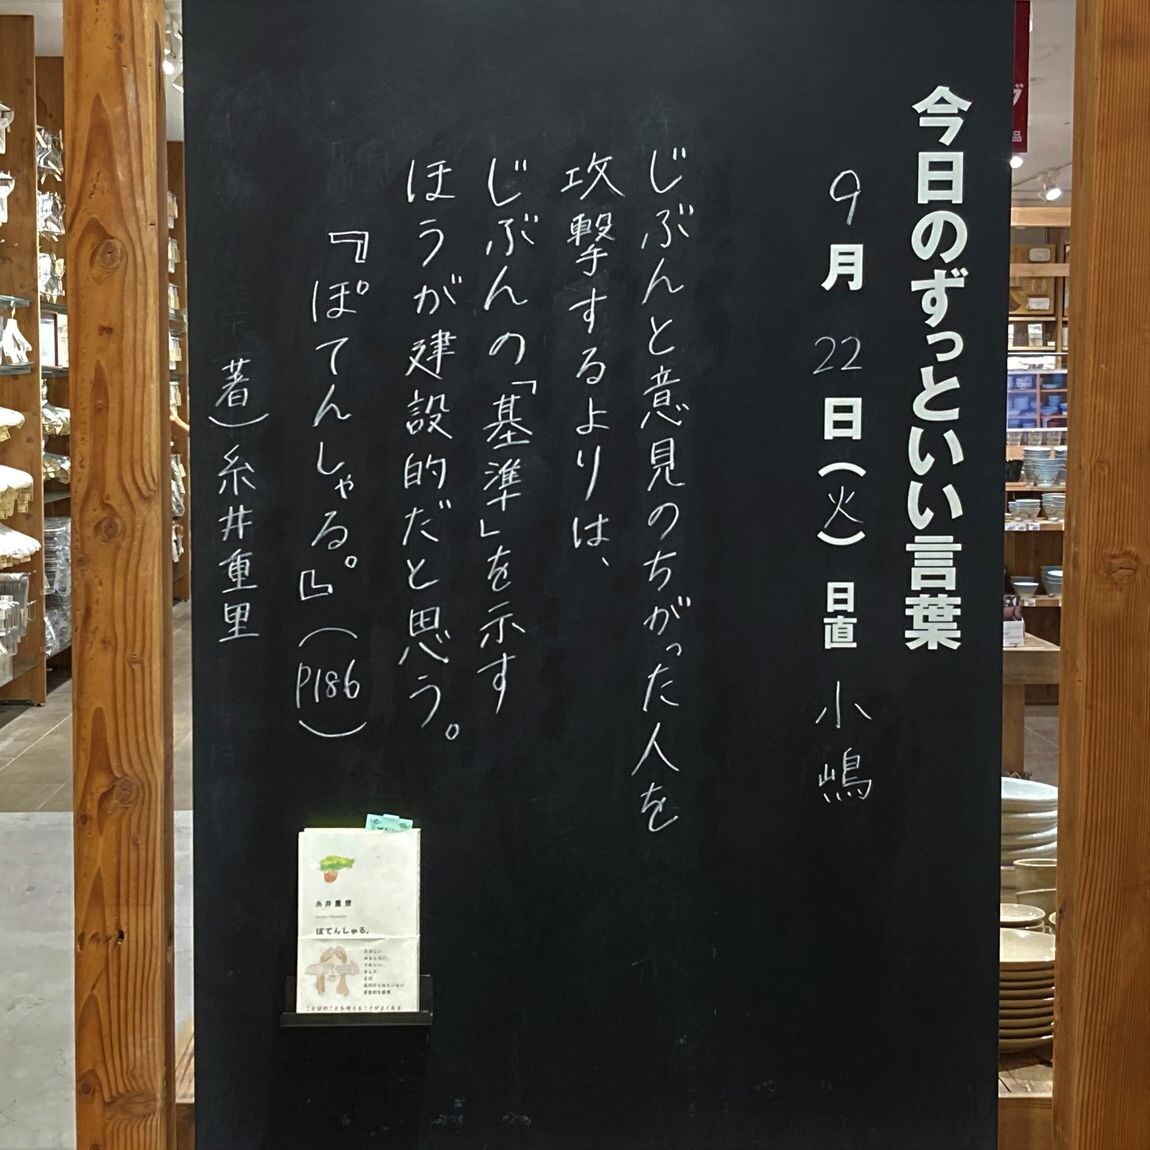 今日のずっといい言葉
9月22日(火) 日直 小嶋
じぶんと意見のちがった人を
攻撃するよりは、
じぶんの「基準」を示す
ほうが建設的だと思う。
『ぽてんしゃる。』(P186)
著)糸井重里
糸井重里
ぽてんしゃる。